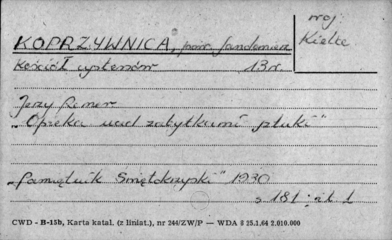 woj
Kielce
KOPRZYWNICA, pow. Sandomierz
Kościół cystersów 13 r.
Jerzy Remer
"Opieka nad zabytkami sztuki"
"Pamiętnik Świętokrzyski" 1930
s 181 : il. 1
CWD - B-15b, Karta katal. (z liniat.), nr 244/ZW/P — WDA g 25.1.64 2.010.000